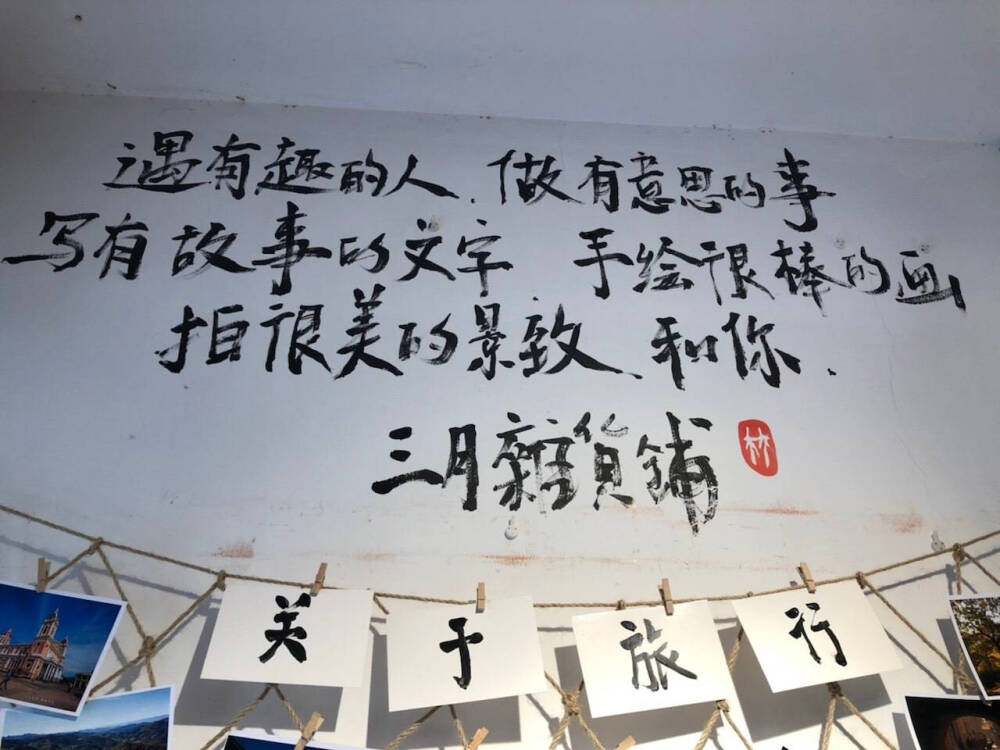 遇有趣的人、做有意思的事
写有故事的文字 手绘很棒的画
拍很美的景致、和你.
三月雜貨铺
林
关于旅行